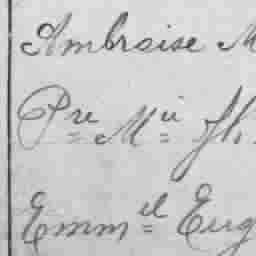 Ambroise M
Pre Mie Jh.
Emmel Eug